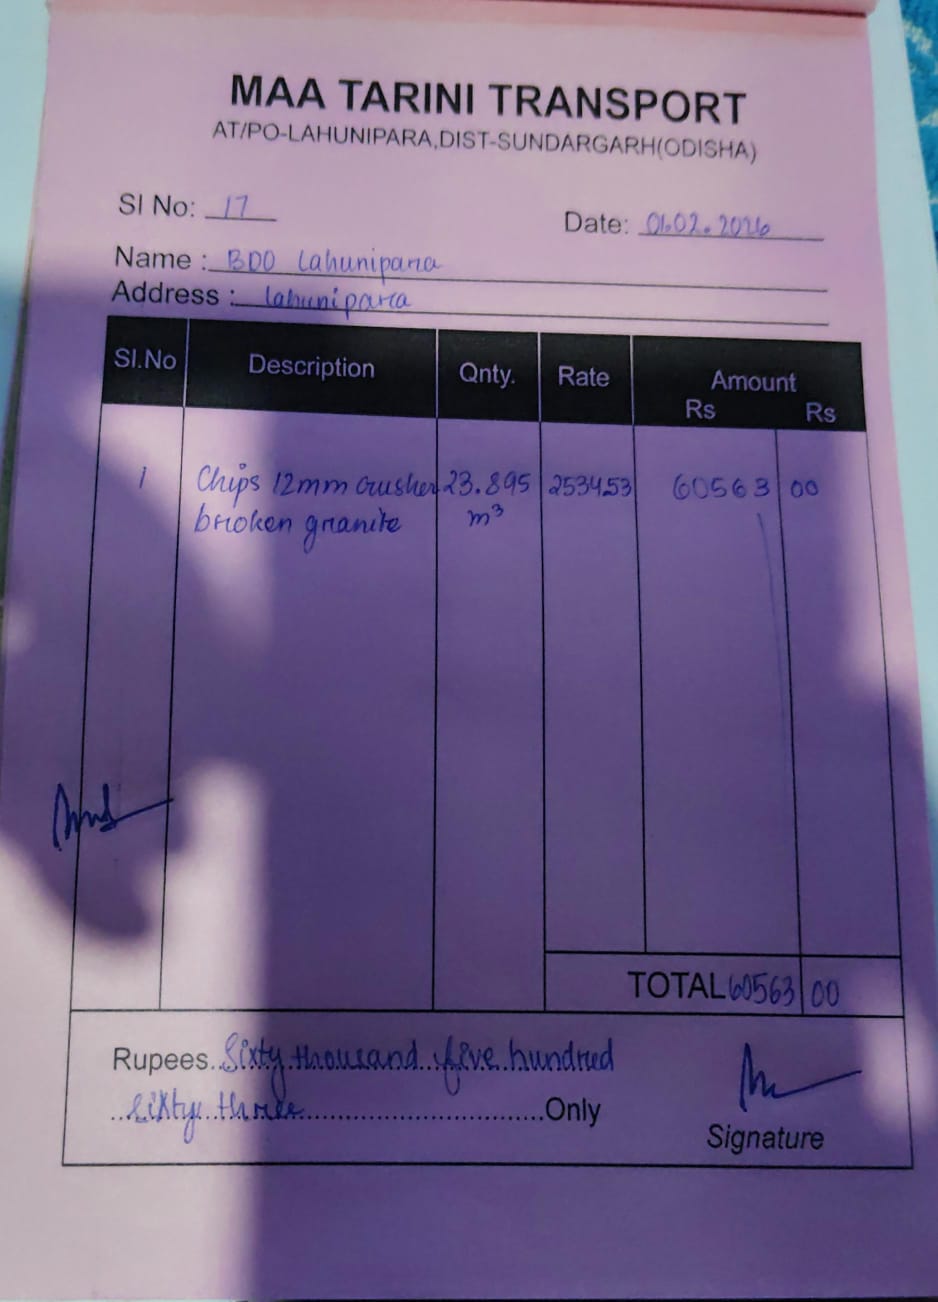 MAA TARINI TRANSPORT
AT/PO-LAHUNIPARA,DIST-SUNDARGARH(ODISHA)
Sl No: 17
Date: 01.02.2026
Name : BDO Lahunipara
Address : Lahunipara
Sl.No Description Qnty. Rate Amount
Rs Rs
1 Chips 12mm crusher 23.895 253453 60563 00
broken granite m³
TOTAL 60563 00
Rupees Sixty thousand five hundred
sixty three Only
Signature